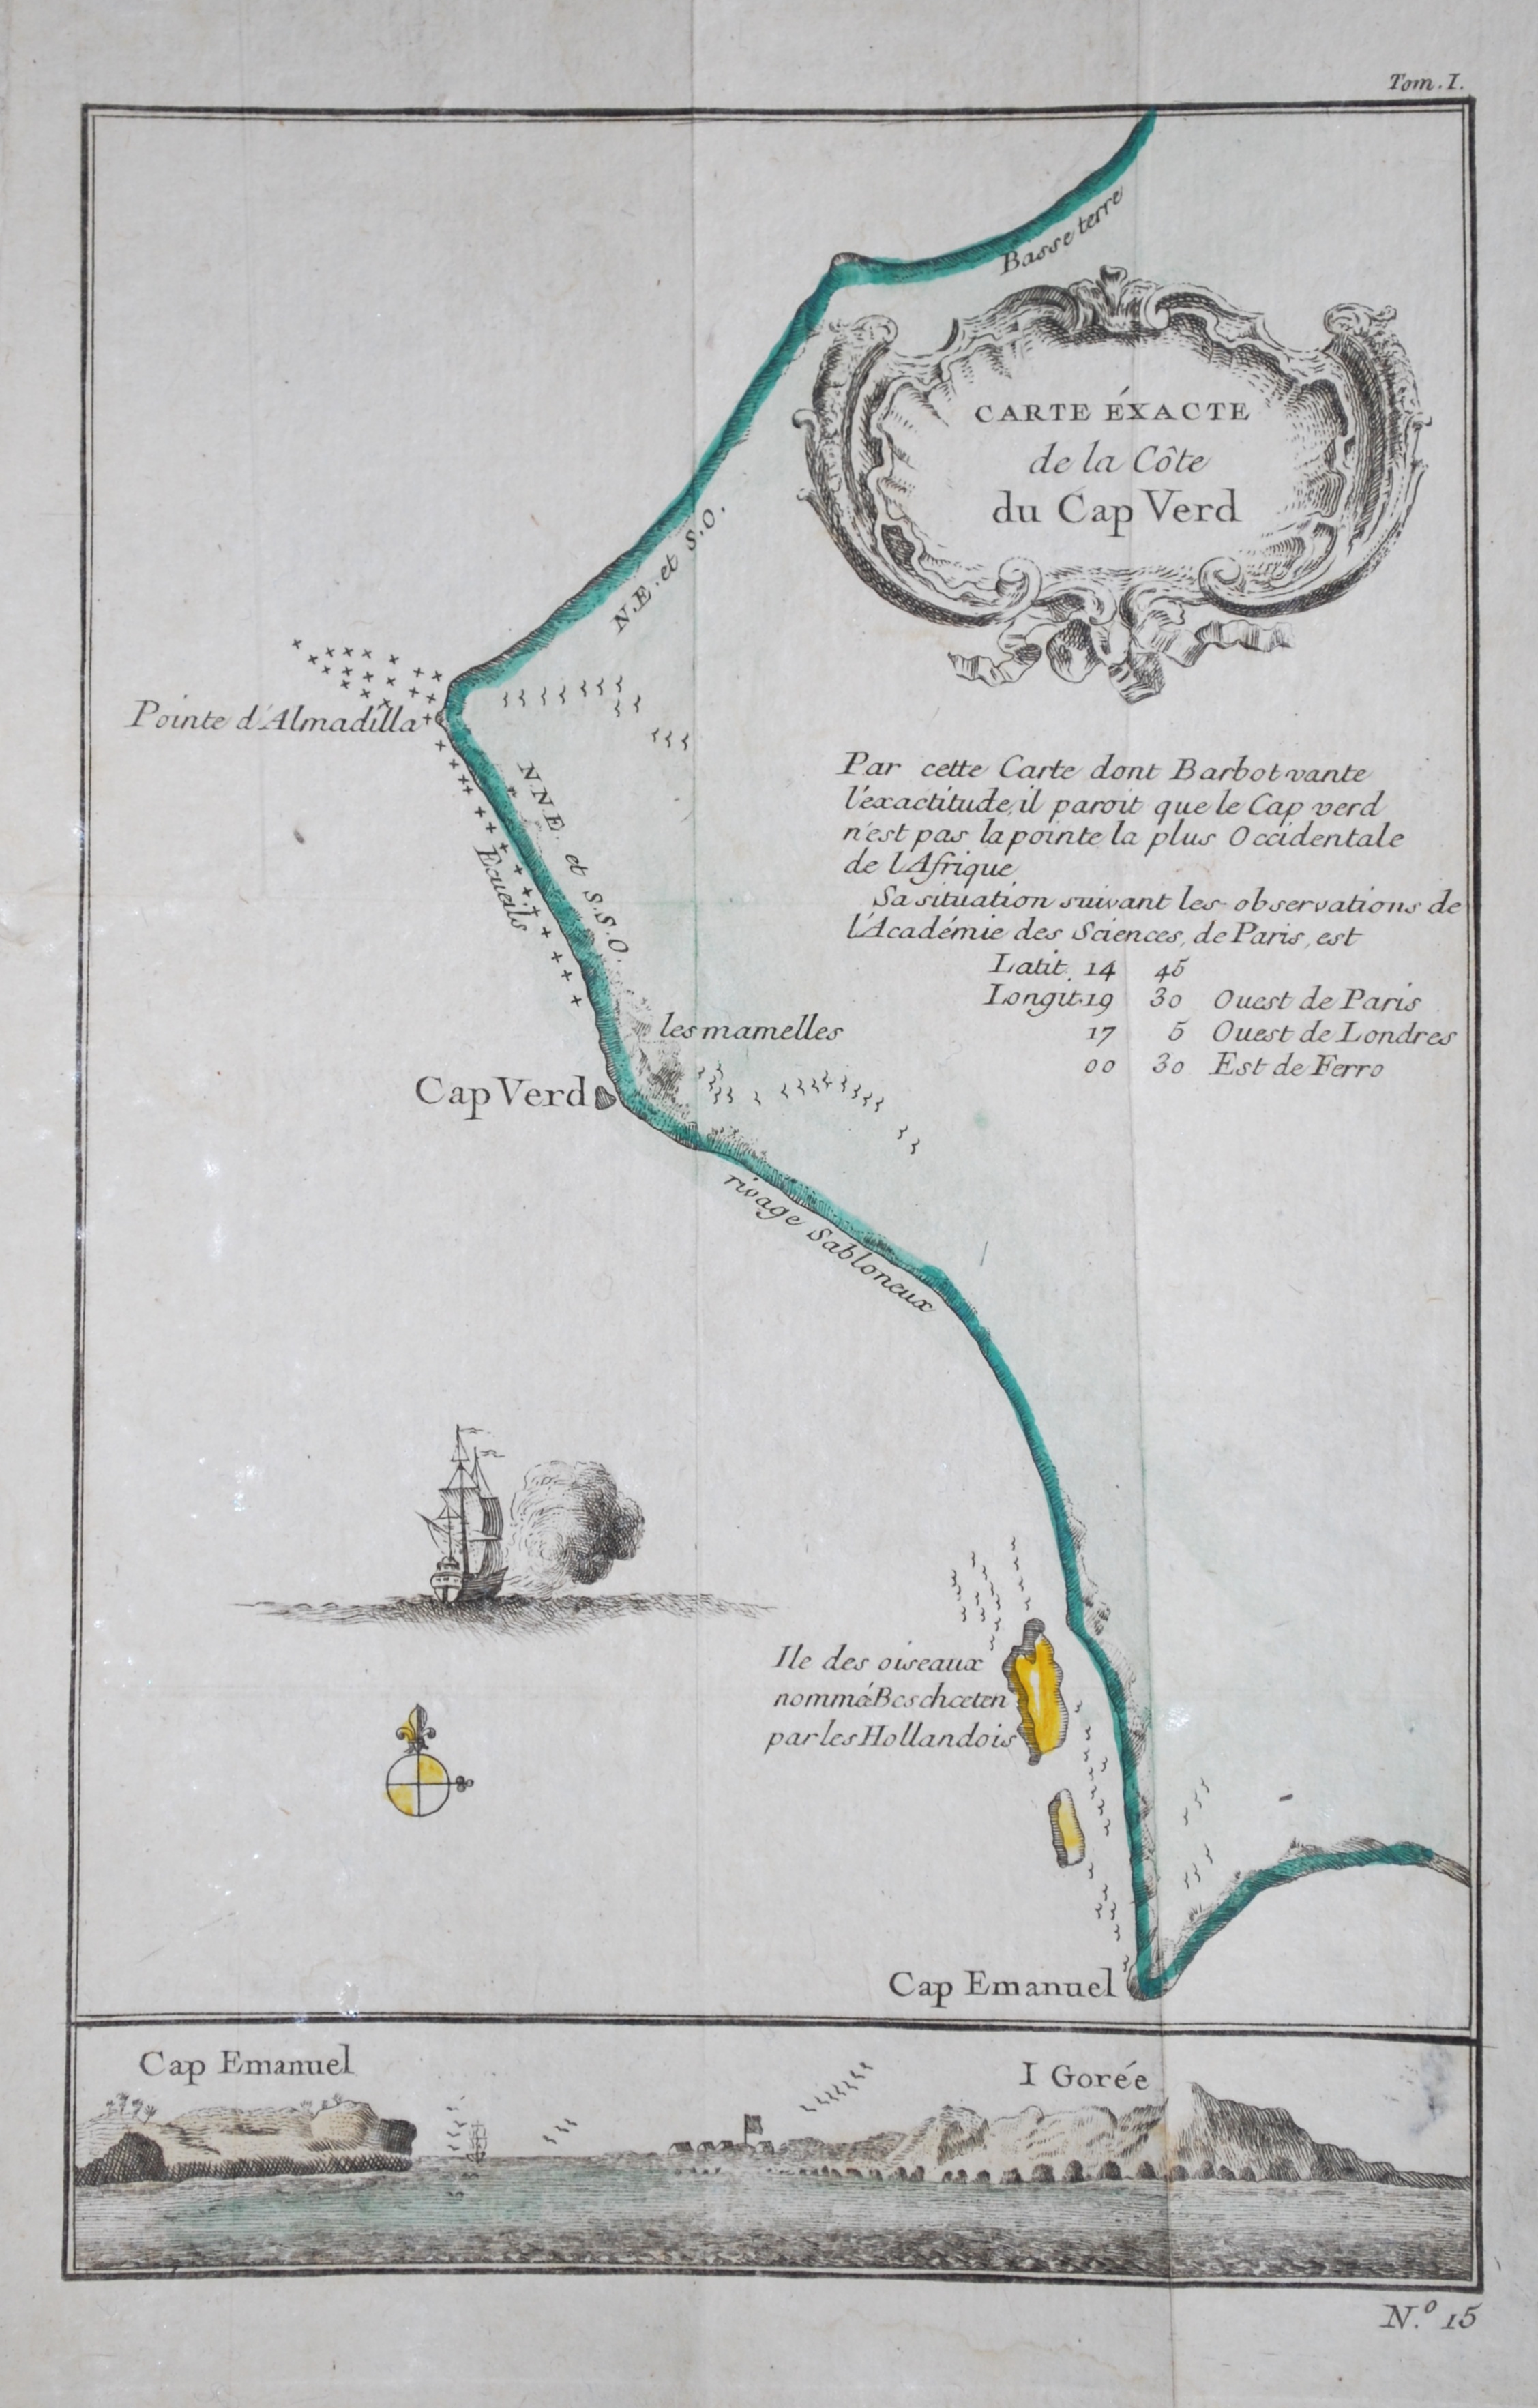 Tom. I.
Basse terre
CARTE ÉXACTE
de la Côte
du Cap Verd
N.E. et S.O.
Pointe d'Almadilla
N.N.E. et S.S.O.
Ecueils
Par cette Carte dont Barbot vante
l'éxactitude, il paroit que le Cap verd
n'est pas la pointe la plus Occidentale
de l'Afrique
Sa situation suivant les observations de
l'Académie des Sciences, de Paris, est
Latit. 14 45
Longit. 19 30 Ouest de Paris
17 5 Ouest de Londres
00 30 Est de Ferro
les mamelles
Cap Verd
rivage Sabloneux
Ile des oiseaux
nommé Beschaeten
par les Hollandois
Cap Emanuel
Cap Emanuel
I Gorée
N.º 15